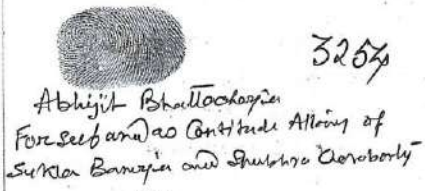 3254
Abhijit Bhattacharjee
For self and as Constitude Attorney of
Sukla Banerjee and Shubhra Chakraborty